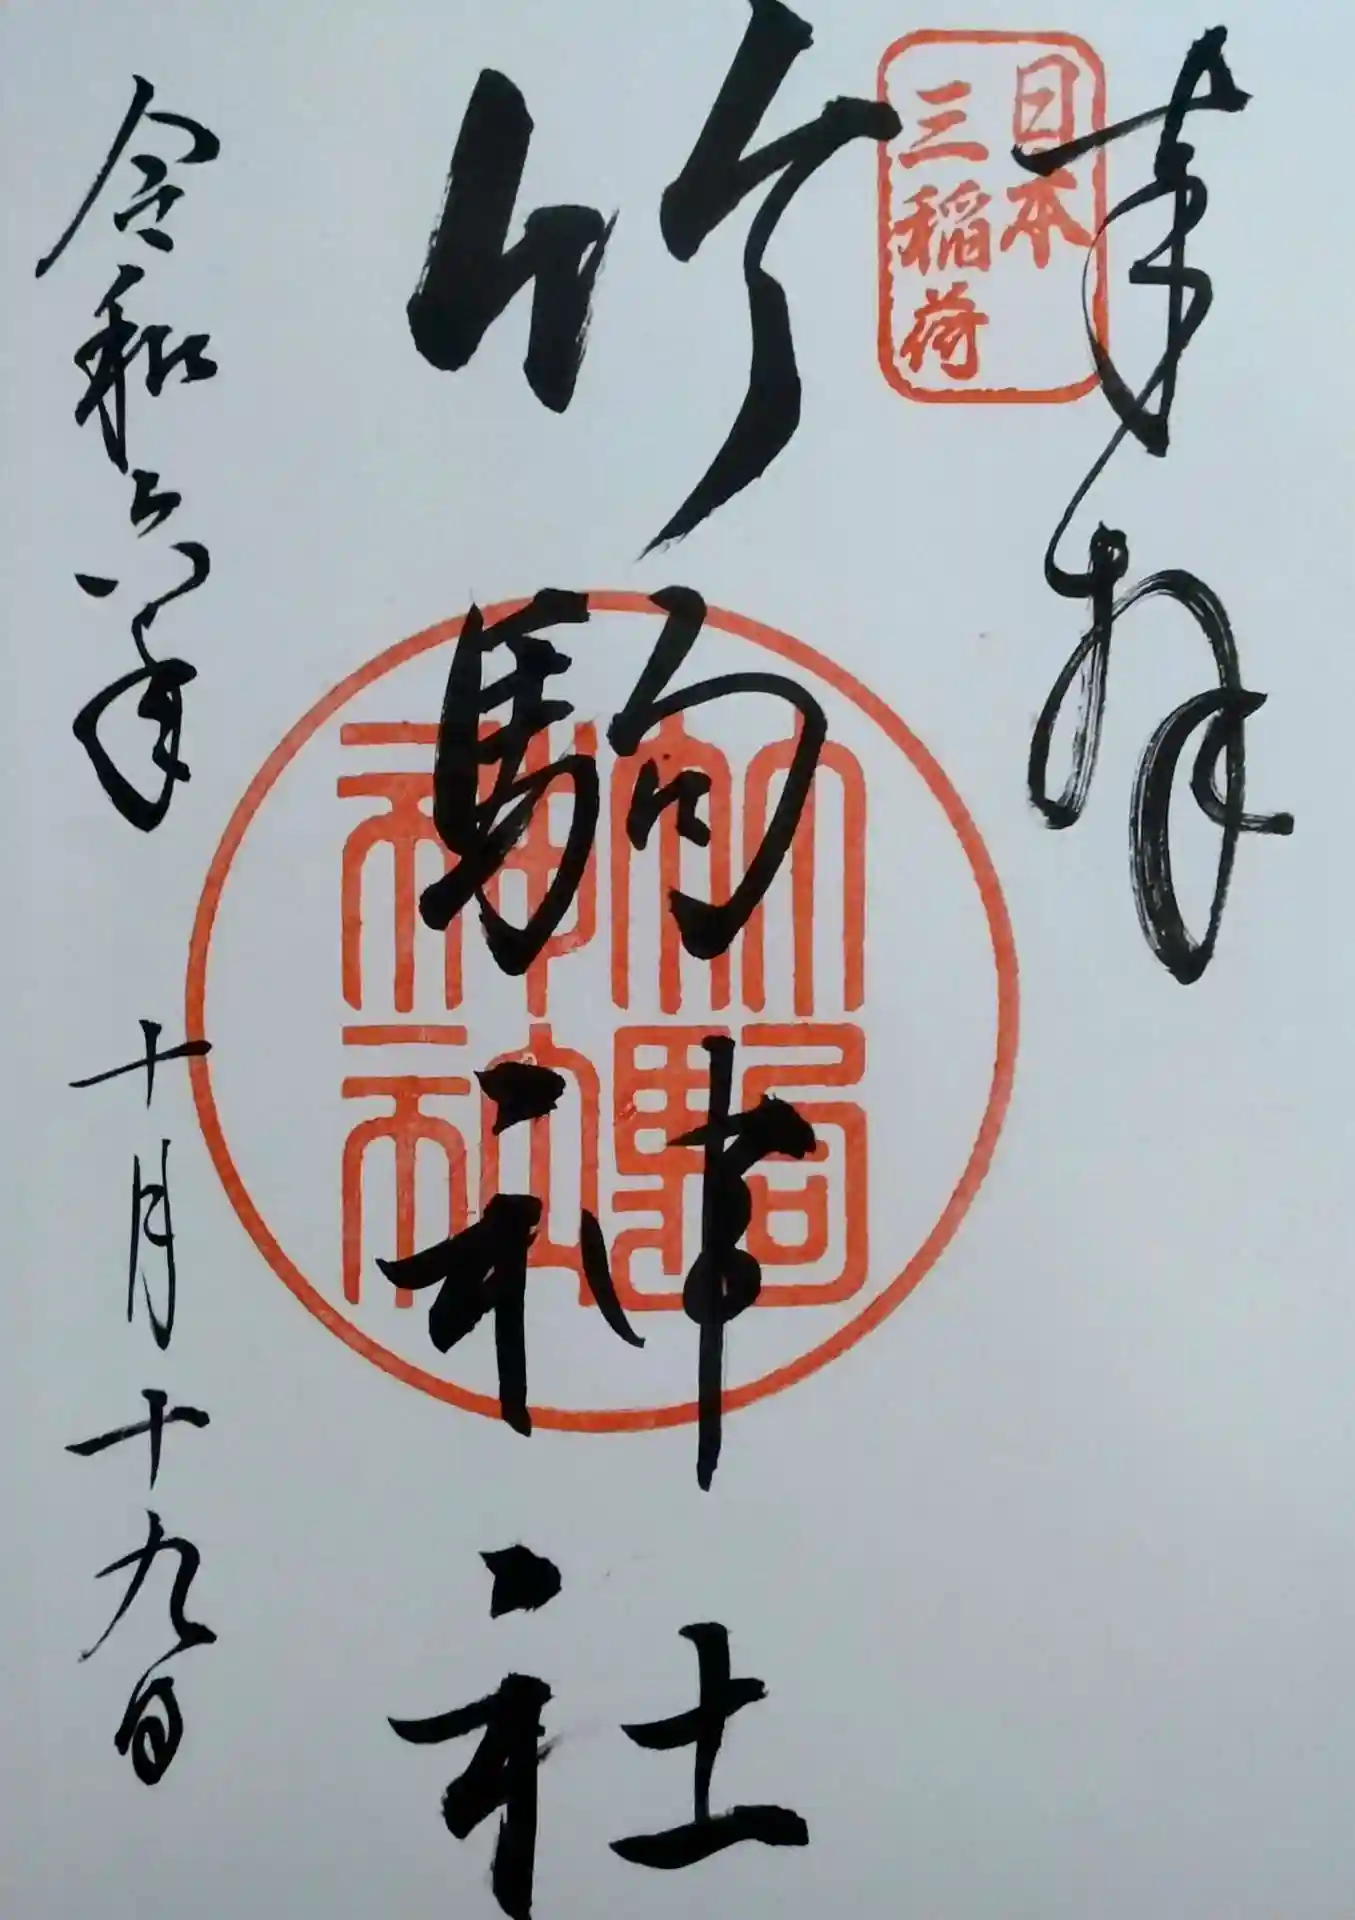 奉拝
日本
三稲荷
竹駒神社
竹駒
神社
令和六年 十月十九日